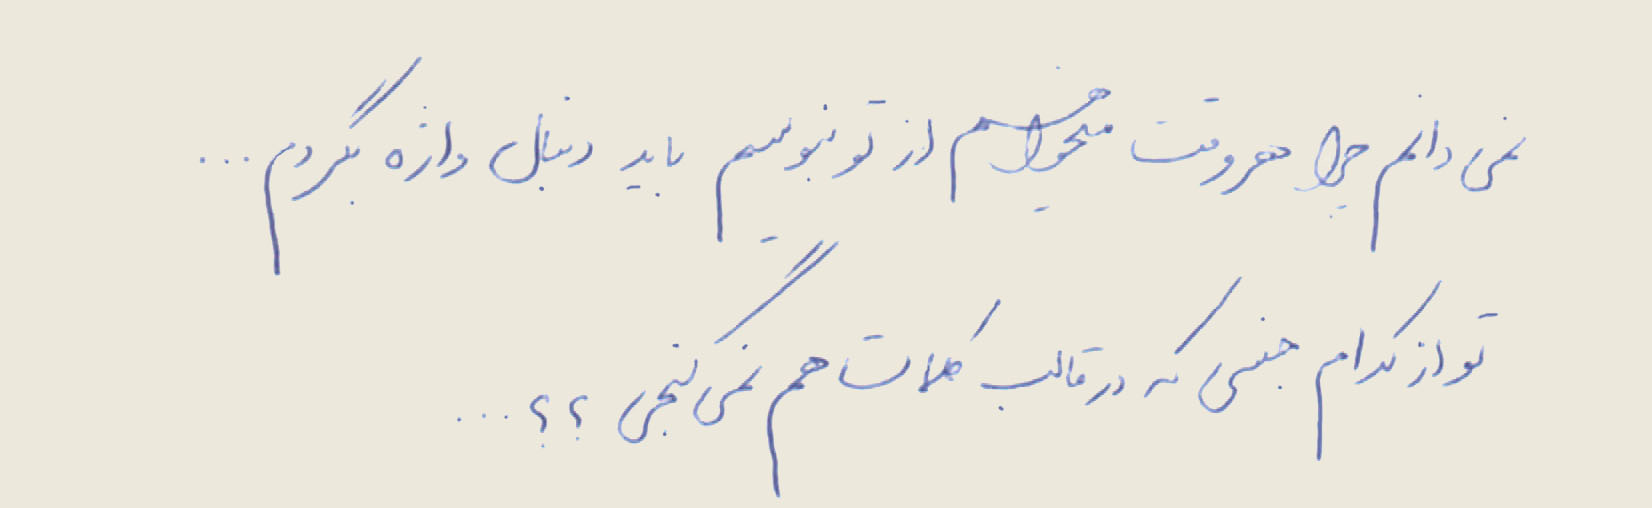 نمی دانم چرا هر وقت میخواهم از تو بنویسم باید دنبال واژه بگردم ...
تو از کدام جنسی که در قالب کلمات هم نمی گنجی ؟؟ ...